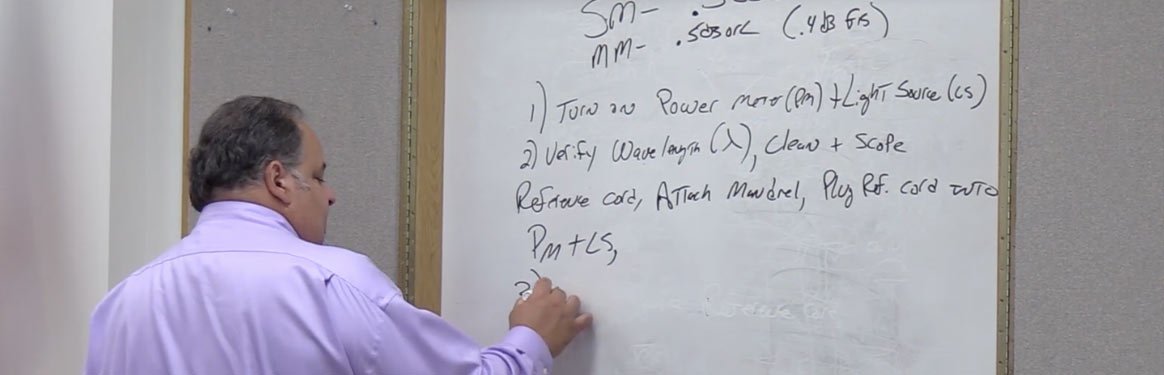 SM- .5
MM- .5dB or < (.4dB
1) Turn on Power meter (PM) + Light Source (LS)
2) Verify Wavelength (λ), Clean + Scope
Reference cord, Attach Mandrel, Plug Ref. cord into
PM + LS,
3)
Reference Cord